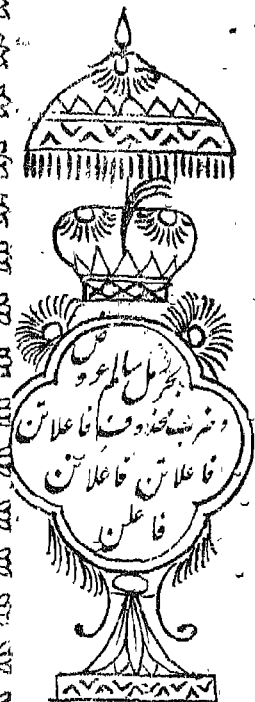 بحر رمل سالم عروض
و ضرب محذوف فاعلاتن
فاعلاتن فاعلاتن
فاعلن